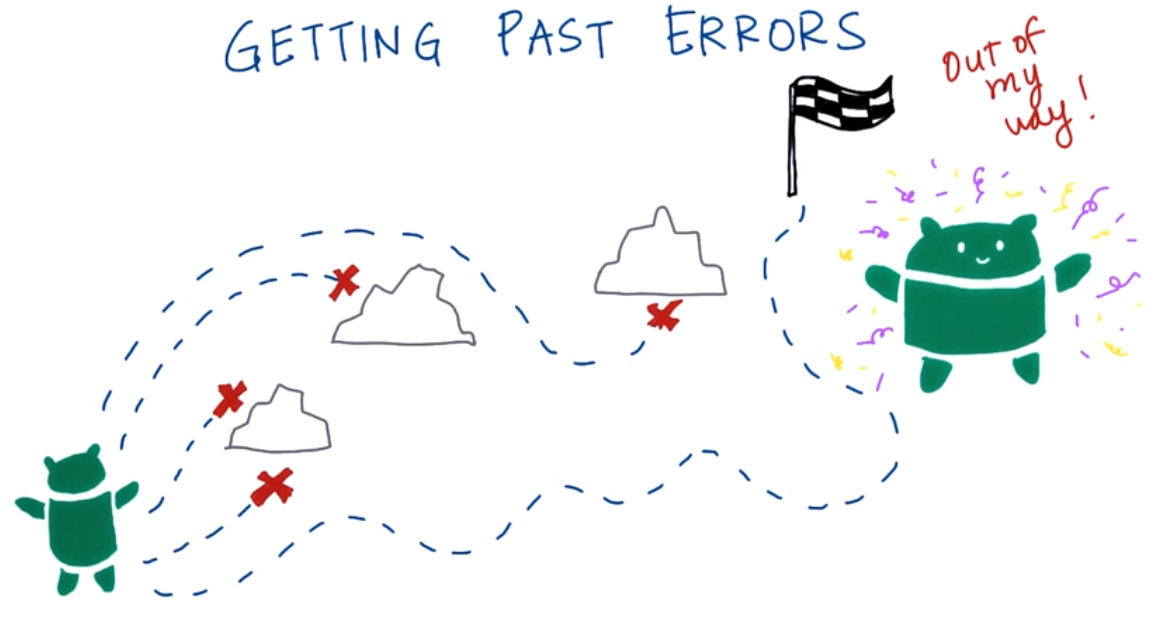 GETTING PAST ERRORS
Out of
my
way!